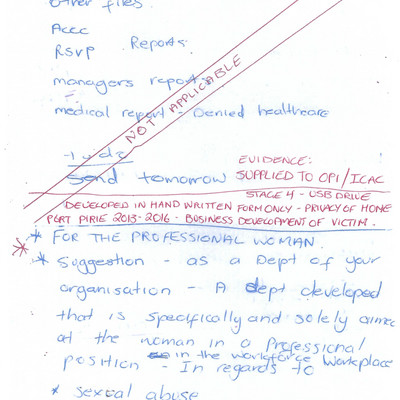 other files.
Accc
RSVP Reports
managers reports
medical report - Denied healthcare
NOT APPLICABLE
send tomorrow
EVIDENCE:
SUPPLIED TO OPI/ICAC
STAGE 4 - USB DRIVE
DEVELOPED IN HAND WRITTEN FORM ONLY - PRIVACY OF HOME
PORT PIRIE 2013-2016 - BUSINESS DEVELOPMENT OF VICTIM.
* FOR THE PROFESSIONAL WOMAN.
* Suggestion - as a Dept of your
organisation - A dept developed
that is specifically and solely aimed
at the woman in a Professional
position - in the workforce workplace
- In regards to
* sexual abuse